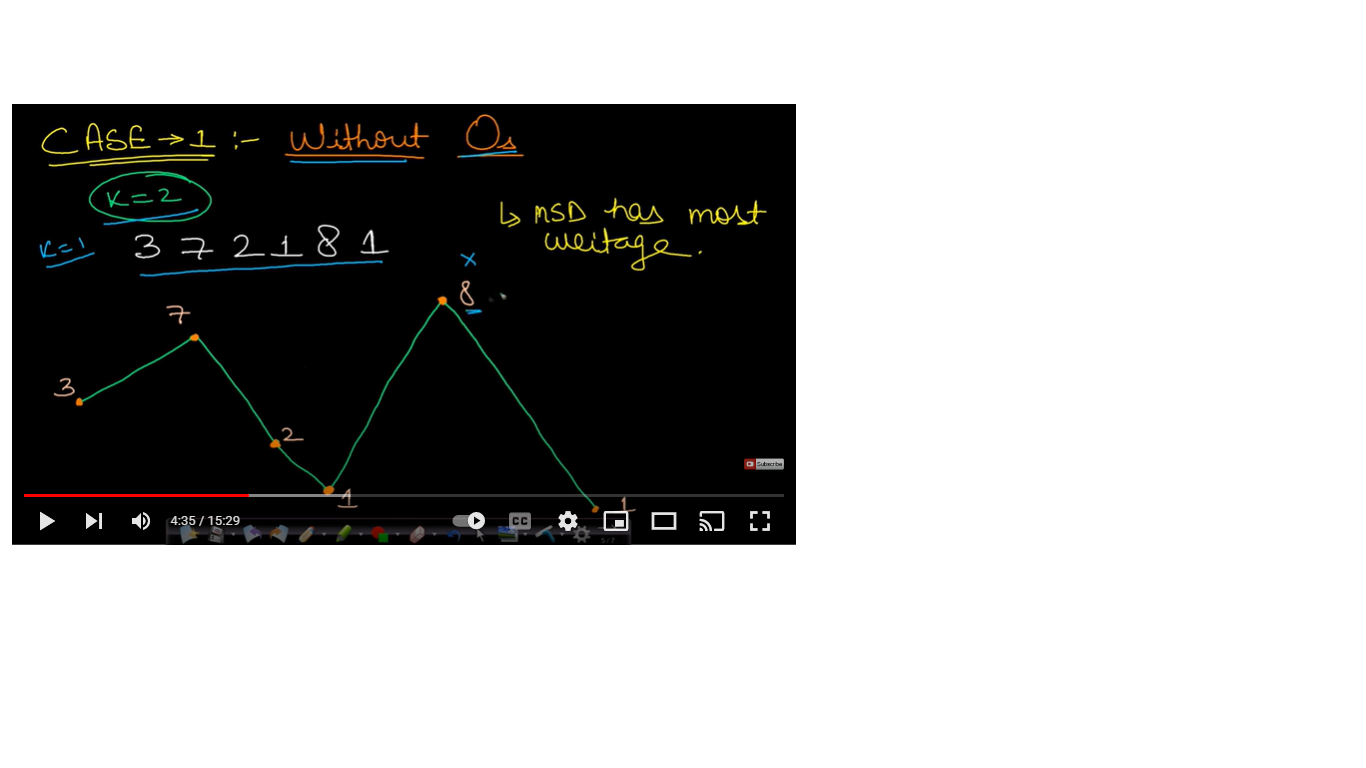 CASE → 1 :- Without Os
K=2
↳ MSD has most
weitage.
K=1 3 7 2 1 8 1
x
8
7
3
2
1
1
Subscribe
4:35 / 15:29
CC